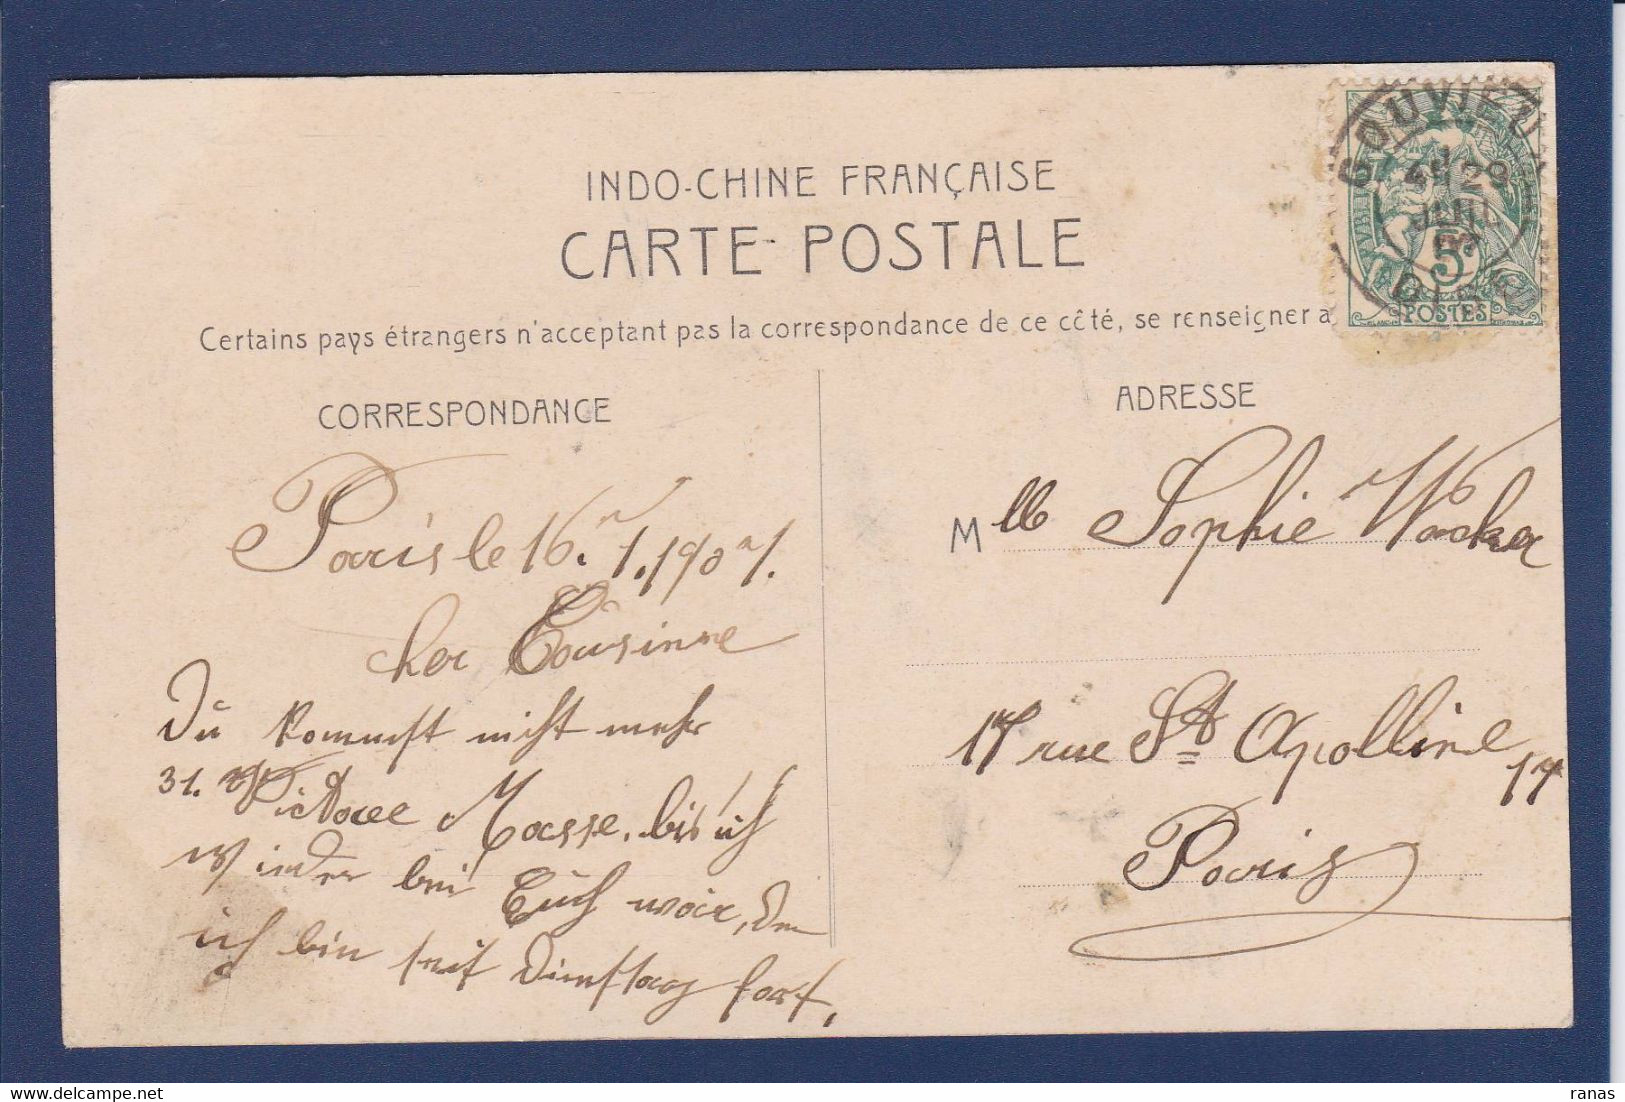 INDO-CHINE FRANÇAISE
CARTE POSTALE
Certains pays étrangers n'acceptant pas la correspondance de ce côté, se renseigner a
CORRESPONDANCE
ADRESSE
GOUVIEUX
29
JUIL
OISE
5c
POSTES
Paris le 16. 7. 1907.
cher Cousinne
Du kommst nicht mehr
31. Victore Masse, bis ich
wieder bei Euch war, den
ich bin seit Dienstag fort,
Mlle Sophie Wacker
17 rue St Apolline 17
Paris
ranas